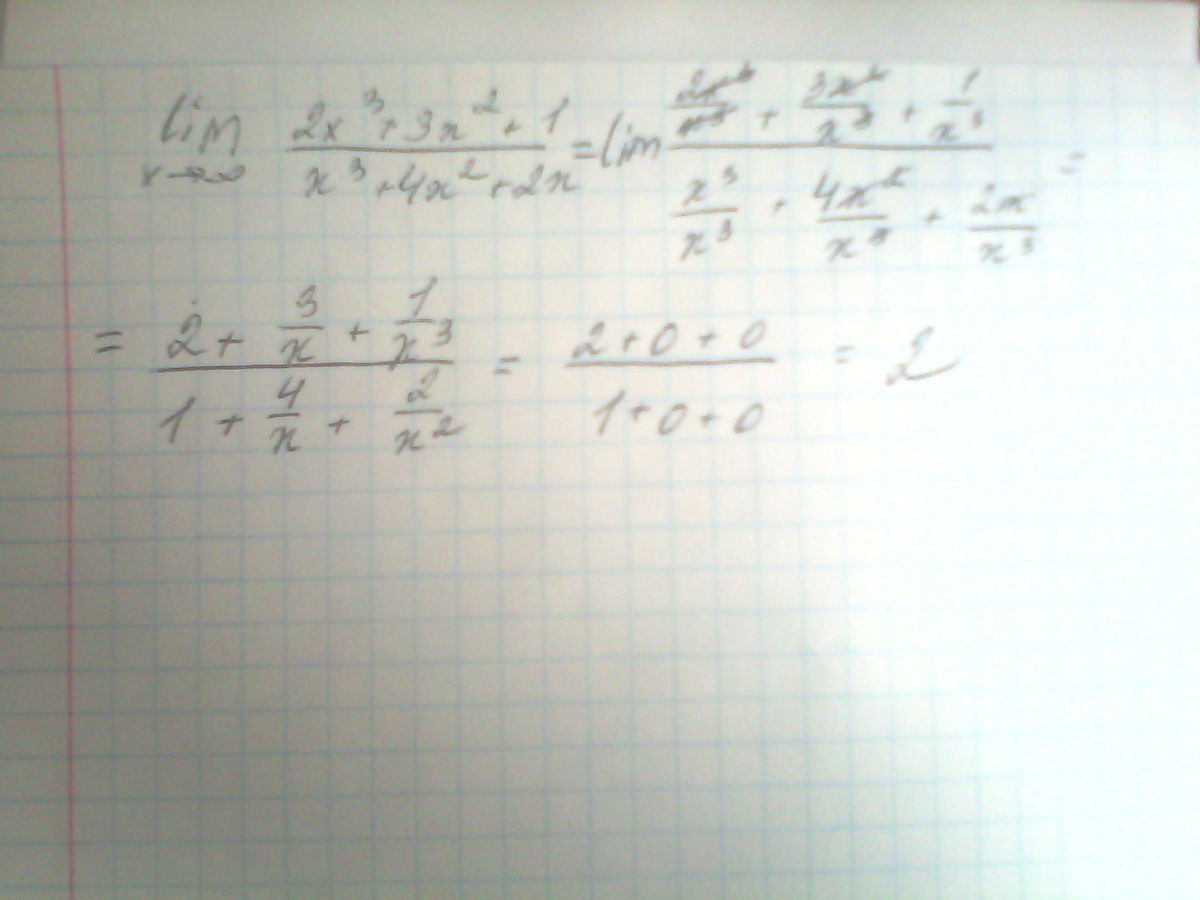 lim x→∞ (2x³+3x²+1)/(x³+4x²+2x) = lim (2x³/x³ + 3x²/x³ + 1/x³)/(x³/x³ + 4x²/x³ + 2x/x³) =
= (2 + 3/x + 1/x³)/(1 + 4/x + 2/x²) = (2+0+0)/(1+0+0) = 2